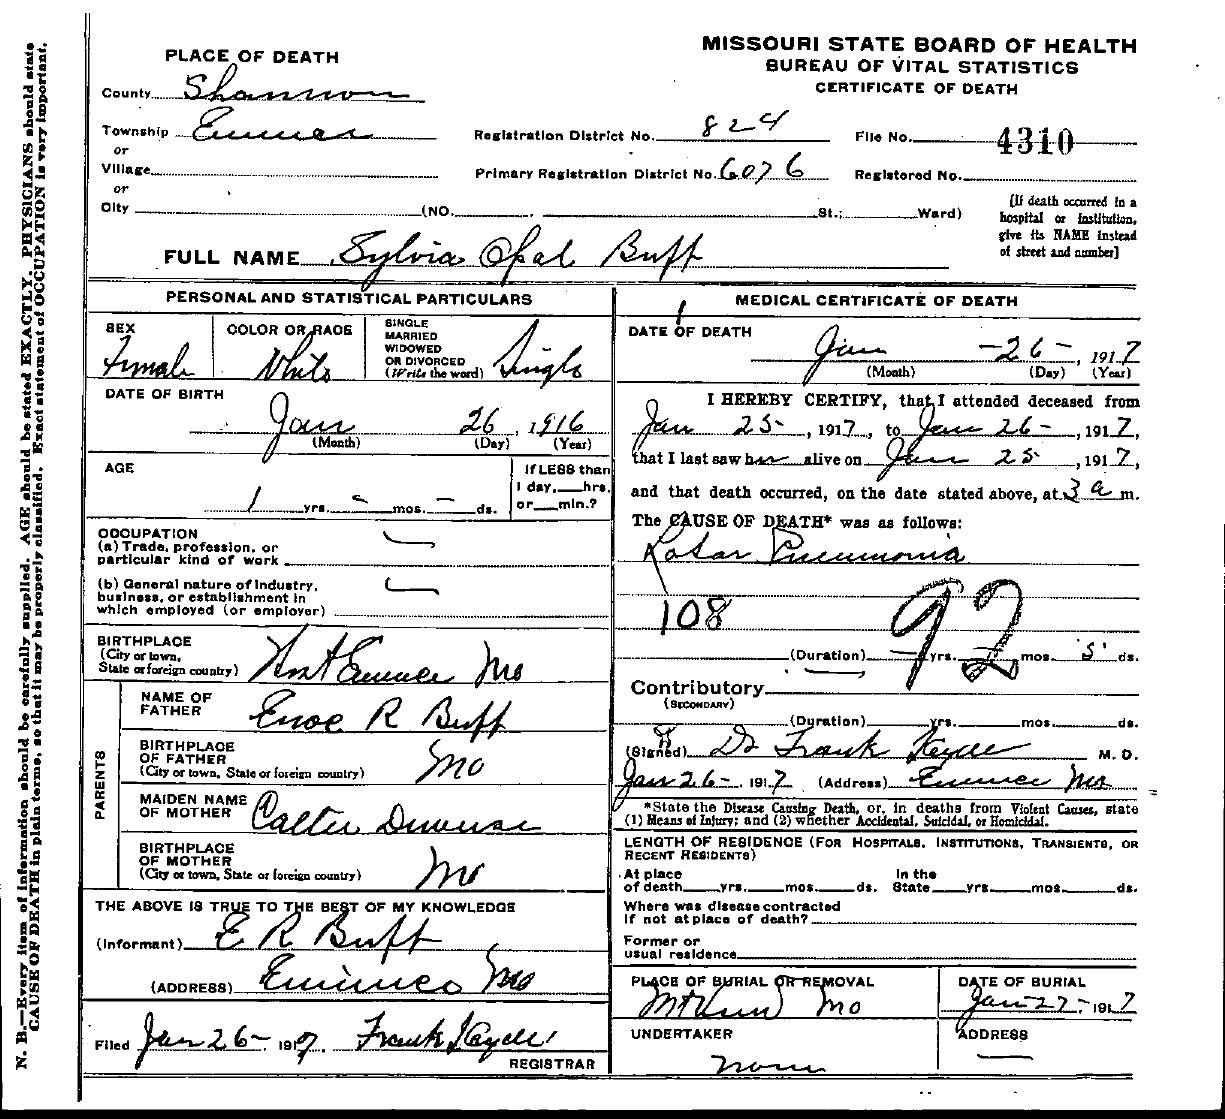 MISSOURI STATE BOARD OF HEALTH
BUREAU OF VITAL STATISTICS
CERTIFICATE OF DEATH
PLACE OF DEATH
County Shannon
Township Eminence
or
Village
or
City (NO. St.; Ward)
Registration District No. 824
File No. 4310
Primary Registration District No. 6076
Registered No.
[If death occurred in a
hospital or institution,
give its NAME instead
of street and number]
FULL NAME Sylvia Opal Buff
PERSONAL AND STATISTICAL PARTICULARS
SEX
Female
COLOR OR RACE
White
SINGLE
MARRIED
WIDOWED
OR DIVORCED
(Write the word)
Single
DATE OF BIRTH
Jan 26, 1916
(Month) (Day) (Year)
AGE
1 yrs. - mos. - ds.
If LESS than
1 day, hrs.
or min.?
OCCUPATION
(a) Trade, profession, or
particular kind of work
(b) General nature of Industry,
business, or establishment in
which employed (or employer)
BIRTHPLACE
(City or town,
State or foreign country) Mo
PARENTS
NAME OF
FATHER R Buff
BIRTHPLACE
OF FATHER
(City or town, State or foreign country) Mo
MAIDEN NAME
OF MOTHER
BIRTHPLACE
OF MOTHER
(City or town, State or foreign country) Mo
THE ABOVE IS TRUE TO THE BEST OF MY KNOWLEDGE
(Informant) E R Buff
(ADDRESS) Eminence Mo
Filed Jan 26- 1917. Frank
REGISTRAR
MEDICAL CERTIFICATE OF DEATH
1
DATE OF DEATH
Jan -26-, 1917
(Month) (Day) (Year)
I HEREBY CERTIFY, that I attended deceased from
Jan 25-, 1917, to Jan 26-, 1917,
that I last saw her alive on Jan 25, 1917,
and that death occurred, on the date stated above, at 3 a m.
The CAUSE OF DEATH* was as follows:
Lobar Pneumonia
108 92
(Duration) yrs. mos. 5 ds.
Contributory
(SECONDARY)
(Duration) yrs. mos. ds.
(Signed) Dr Frank M. D.
Jan 26-, 1917 (Address) Eminence Mo
*State the Disease Causing Death, or, in deaths from Violent Causes, state
(1) Means of Injury; and (2) whether Accidental, Suicidal, or Homicidal.
LENGTH OF RESIDENCE (FOR HOSPITALS, INSTITUTIONS, TRANSIENTS, OR
RECENT RESIDENTS)
At place In the
of death yrs. mos. ds. State yrs. mos. ds.
Where was disease contracted
if not at place of death?
Former or
usual residence
PLACE OF BURIAL OR REMOVAL
Mo
DATE OF BURIAL
Jan-27-, 1917
UNDERTAKER
none
ADDRESS
N. B.—Every item of information should be carefully supplied. AGE should be stated EXACTLY. PHYSICIANS should state
CAUSE OF DEATH in plain terms, so that it may be properly classified. Exact statement of OCCUPATION is very important.